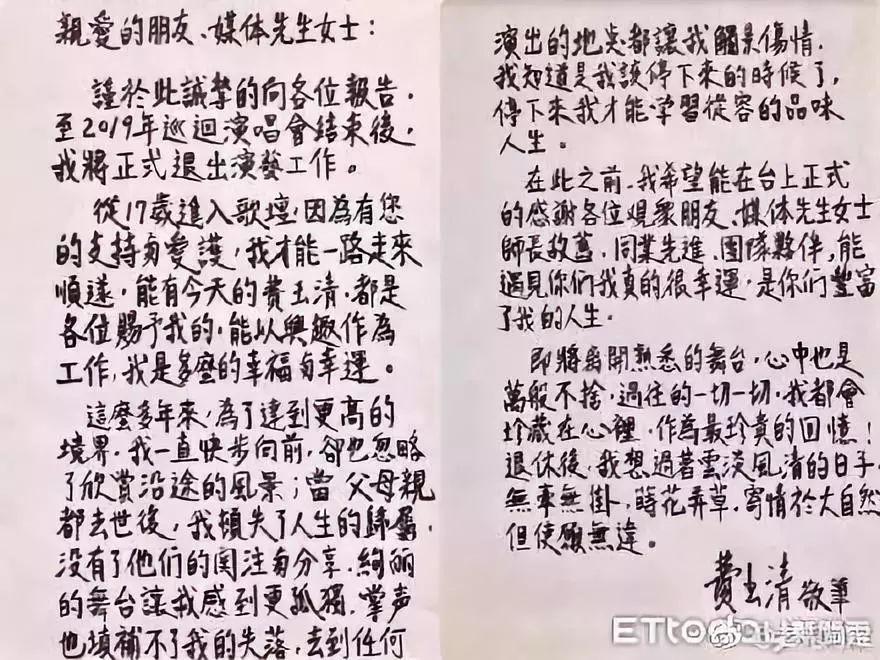 親愛的朋友、媒体先生女士：
謹於此誠摯的向各位報告，
至2019年巡迴演唱會結束後，
我將正式退出演藝工作。
從17歲進入歌壇，因為有您
的支持與愛護，我才能一路走來
順遂，能有今天的費玉清，都是
各位賜予我的，能以興趣作為
工作，我是多麼的幸福與幸運。
這麼多年來，為了達到更高的
境界，我一直快步向前，卻也忽略
了欣賞沿途的風景；當父母親
都去世後，我頓失了人生的歸屬，
没有了他們的関注與分享，絢麗
的舞台讓我感到更孤獨，掌声
也填補不了我的失落，去到任何
演出的地点都讓我觸景傷情，
我知道是我該停下來的時候了，
停下來我才能学習從容的品味
人生。
在此之前，我希望能在台上正式
的感謝各位觀衆朋友、媒体先生女士
師長故舊、同業先進、團隊夥伴，能
遇見你們我真的很幸運，是你們豐富
了我的人生。
即將离開熟悉的舞台，心中也是
萬般不捨，過往的一切一切，我都會
珍藏在心裡，作為最珍貴的回憶！
退休後，我想過著雲淡風清的日子，
無牽無掛，蒔花弄草，寄情於大自然
但使願無違。
費玉清 敬筆
ETtoday